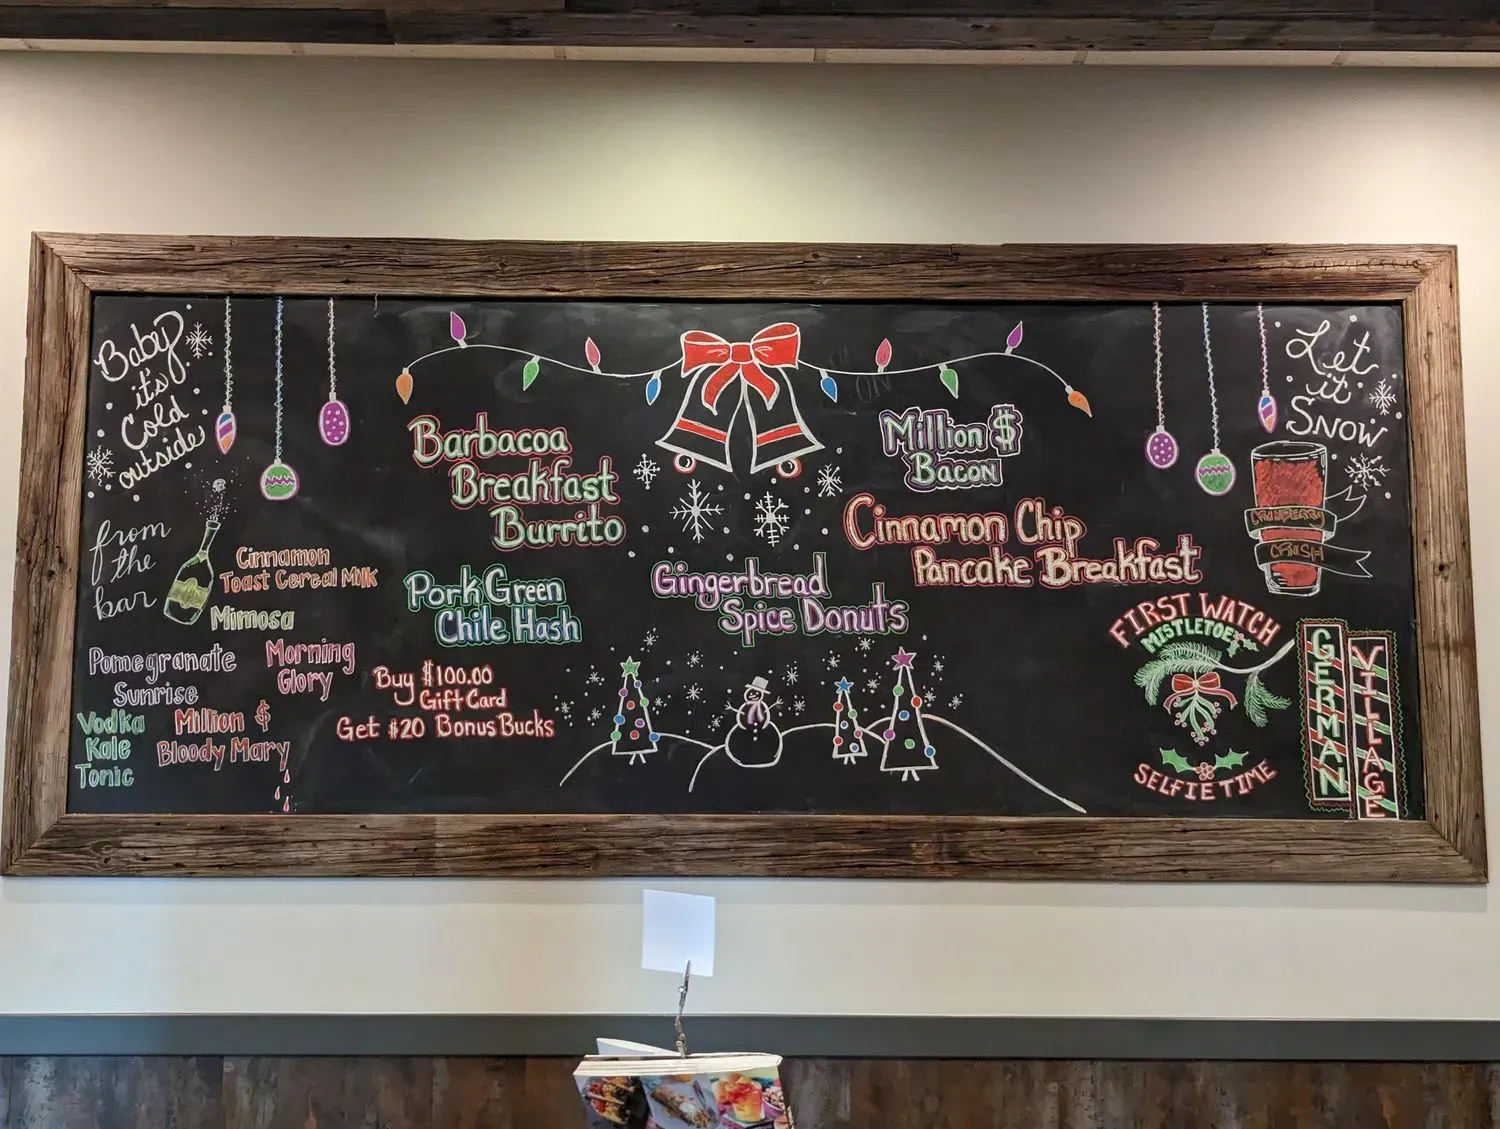 Baby
it's
Cold
outside
from
the
bar
Cinnamon
Toast Cereal Milk
Mimosa
Pomegranate
Sunrise
Morning
Glory
Vodka
Kale
Tonic
Million $
Bloody Mary
Barbacoa
Breakfast
Burrito
Pork Green
Chile Hash
Buy $100.00
Gift Card
Get $20 Bonus Bucks
Gingerbread
Spice Donuts
Million $
Bacon
Cinnamon Chip
Pancake Breakfast
Let
it
Snow
CRANBERRY
CRUSH
FIRST WATCH
MISTLETOE
SELFIE TIME
GERMAN
VILLAGE